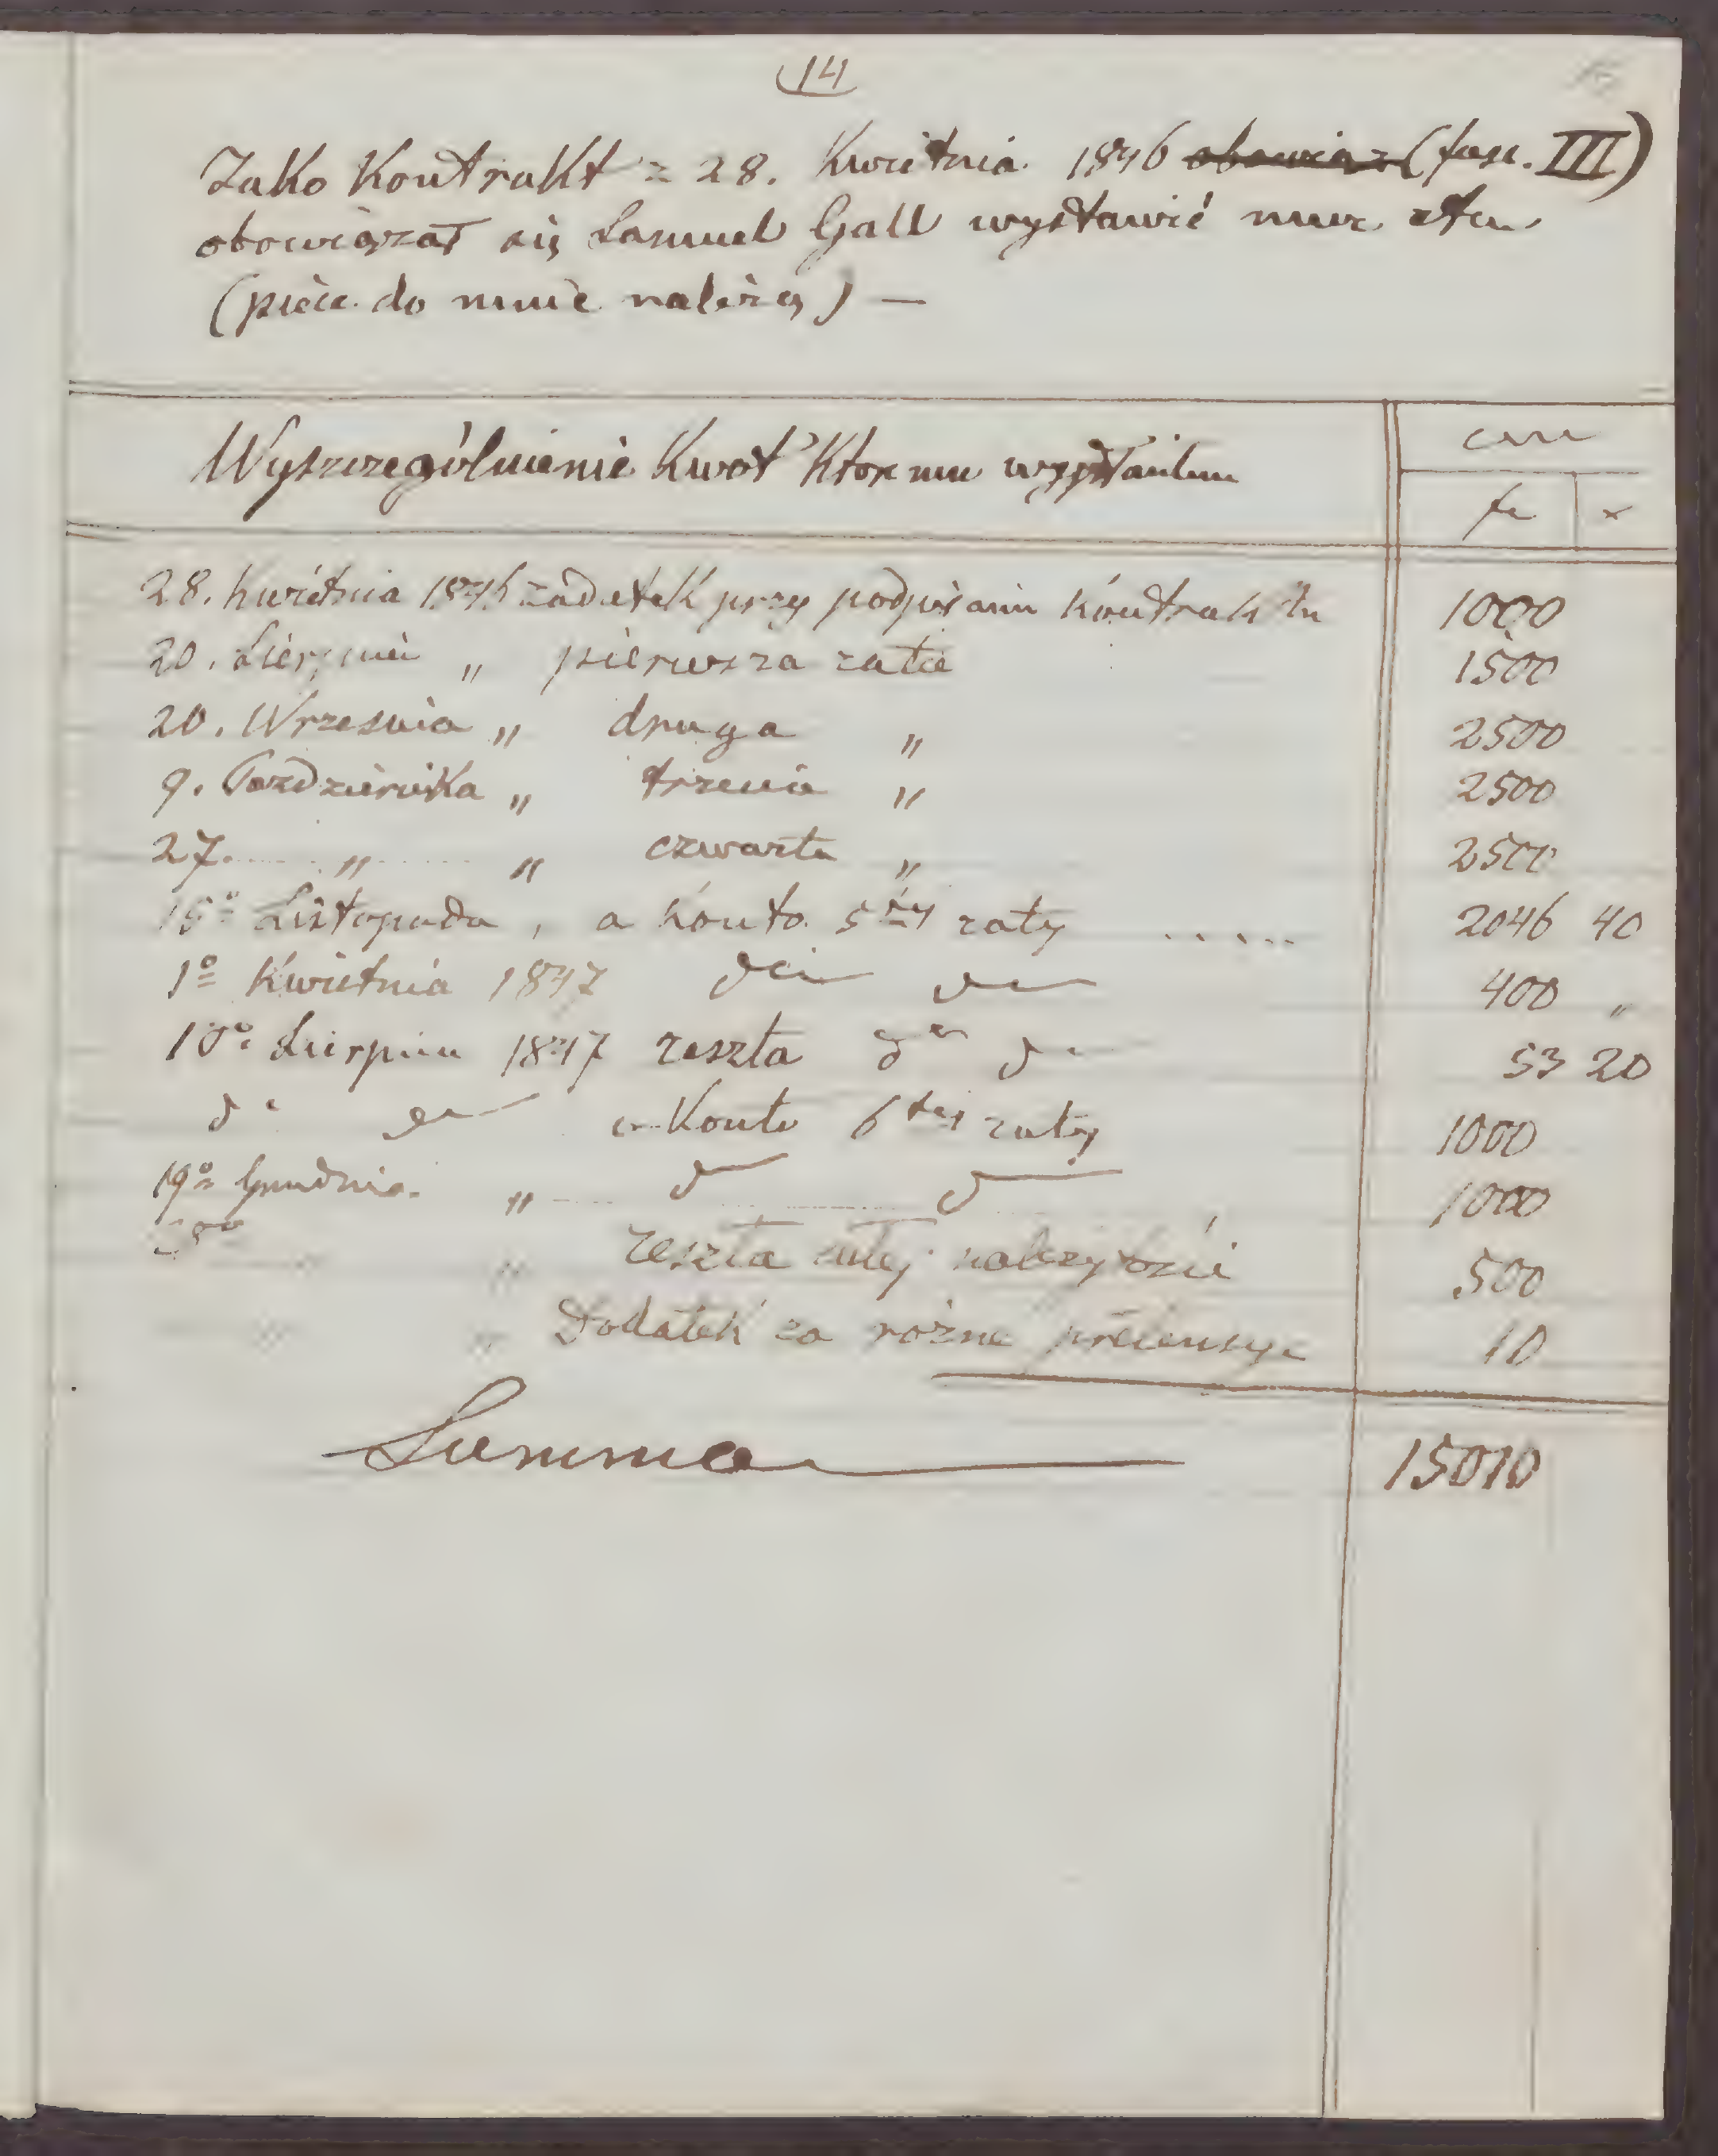 14
Jako Kontrakt z 28. Kwietnia 1846 (fasc. III)
obowiązał się Samuel Gall wystawić
(piece do mnie należą) —
Wyszczególnienie Kwot Które mu wypłaciłem
cm
fr x
28. Kwietnia 1846 zadatek przy podpisaniu kontraktu 1000
20. Sierpnia „ pierwsza rata 1500
20. Wrzesnia „ druga „ 2500
9. Pazdziernika „ trzecia „ 2500
27. „ „ czwarta „ 2500
15º Listopada , a konto 5tej raty ..... 2046 40
1º Kwietnia 1847 dto dto 400 „
10º Sierpnia 1847 reszta dto dto 53 20
dto dto a Konto 6tej raty 1000
19º Grudnia „ dto dto 1000
„ „ reszta całej należytości 500
„ „ Dodatek za różne pretensye 10
Summa 15010